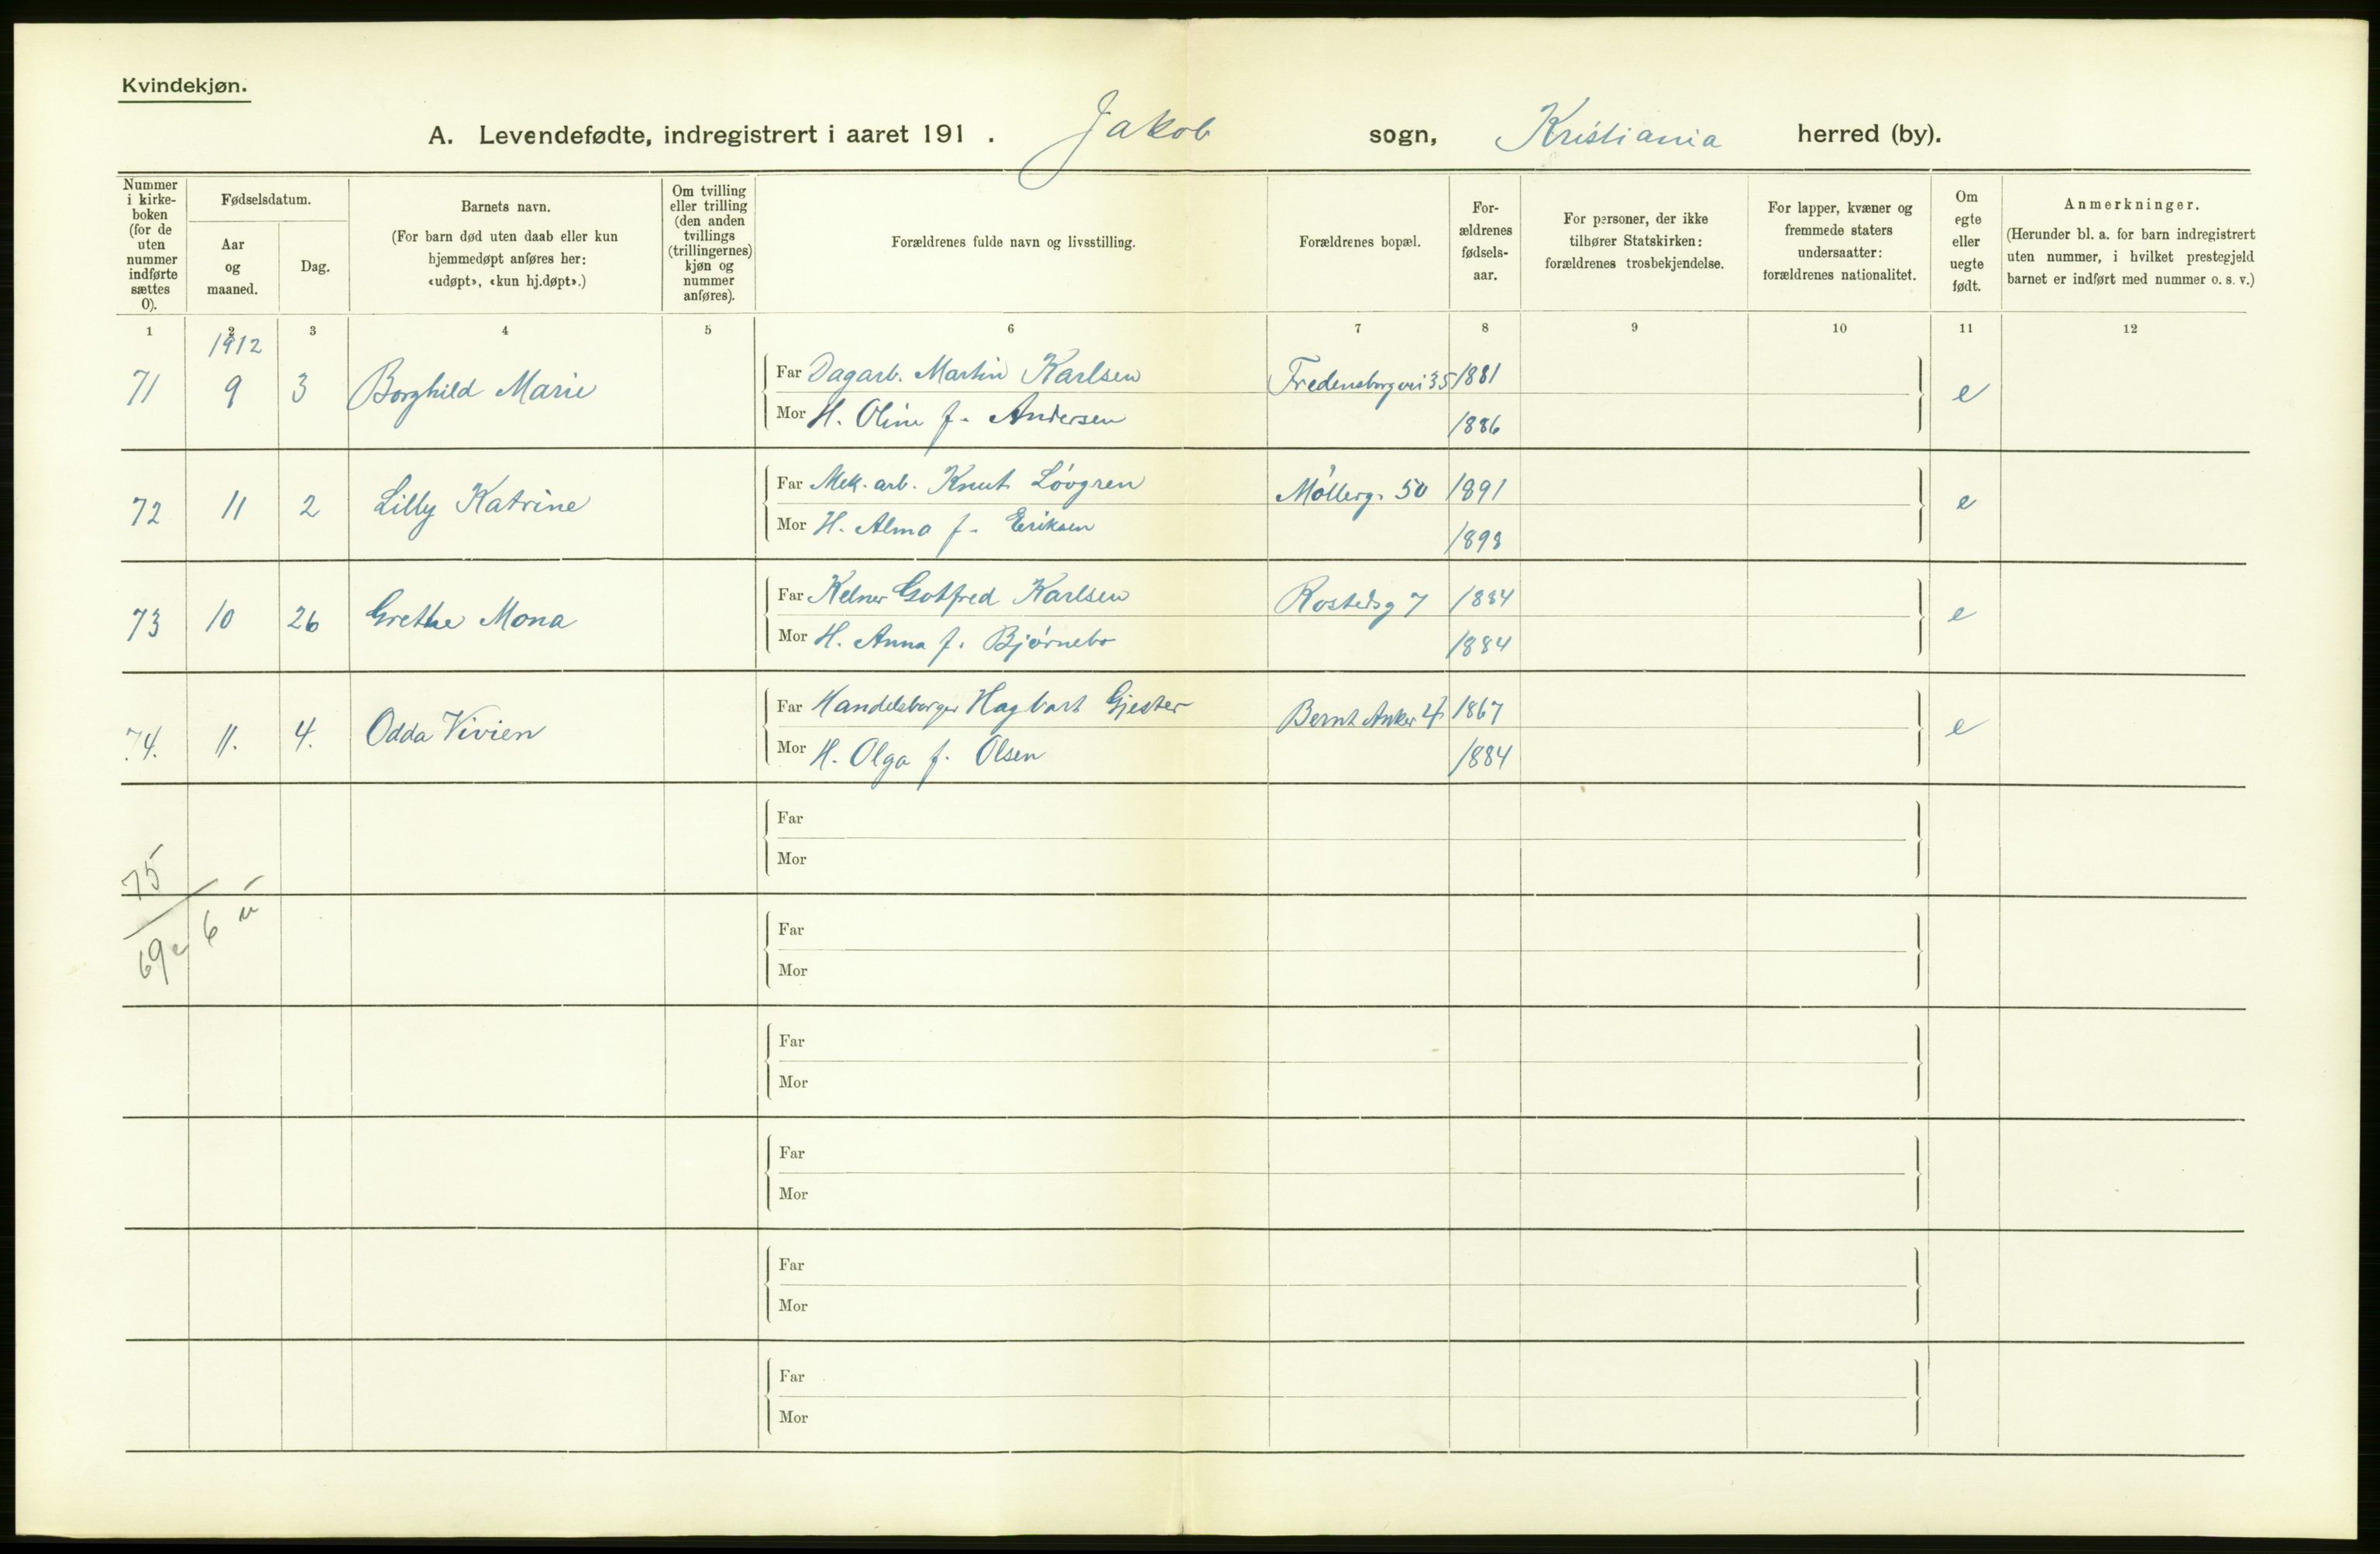 Kvindekjøn.
A. Levendefødte, indregistrert i aaret 191 . Jakob sogn, Kristiania herred (by).
Nummer i kirke-boken (for de uten nummer indførte sættes 0).
Fødselsdatum.
Aar og maaned.
Dag.
Barnets navn.
(For barn død uten daab eller kun
hjemmedøpt anføres her:
«udøpt», «kun hj.døpt».)
Om tvilling
eller trilling
(den anden
tvillings
(trillingernes)
kjøn og
nummer
anføres).
Forældrenes fulde navn og livsstilling.
Forældrenes bopæl.
For-
ældrenes
fødsels-
aar.
For personer, der ikke
tilhører Statskirken:
forældrenes trosbekjendelse.
For lapper, kvæner og
fremmede staters
undersaatter:
forældrenes nationalitet.
Om
egte
eller
uegte
født.
Anmerkninger.
(Herunder bl. a. for barn indregistrert
uten nummer, i hvilket prestegjeld
barnet er indført med nummer o. s. v.)
1 2 3 4 5 6 7 8 9 10 11 12
1912
71 9 3 Borghild Marie Far Dagarb. Martin Karlsen Fredensborgvei 35 1881 e
Mor H. Oline f. Andersen 1886
72 11 2 Lilly Katrine Far Mek. arb. Knut Løvgren Møllerg. 50 1891 e
Mor H. Alma f. Eriksen 1893
73 10 26 Grethe Mona Far Kelner Gotfred Karlsen Rostedsg 7 1884 e
Mor H. Anna f. Bjørnebo 1884
74. 11. 4. Odda Vivien Far Handelsborger Hagbart Gjester Bernt Anker 4 1867 e
Mor H. Olga f. Olsen 1884
Far
Mor
75
69 e 6 u
Far
Mor
Far
Mor
Far
Mor
Far
Mor
Far
Mor